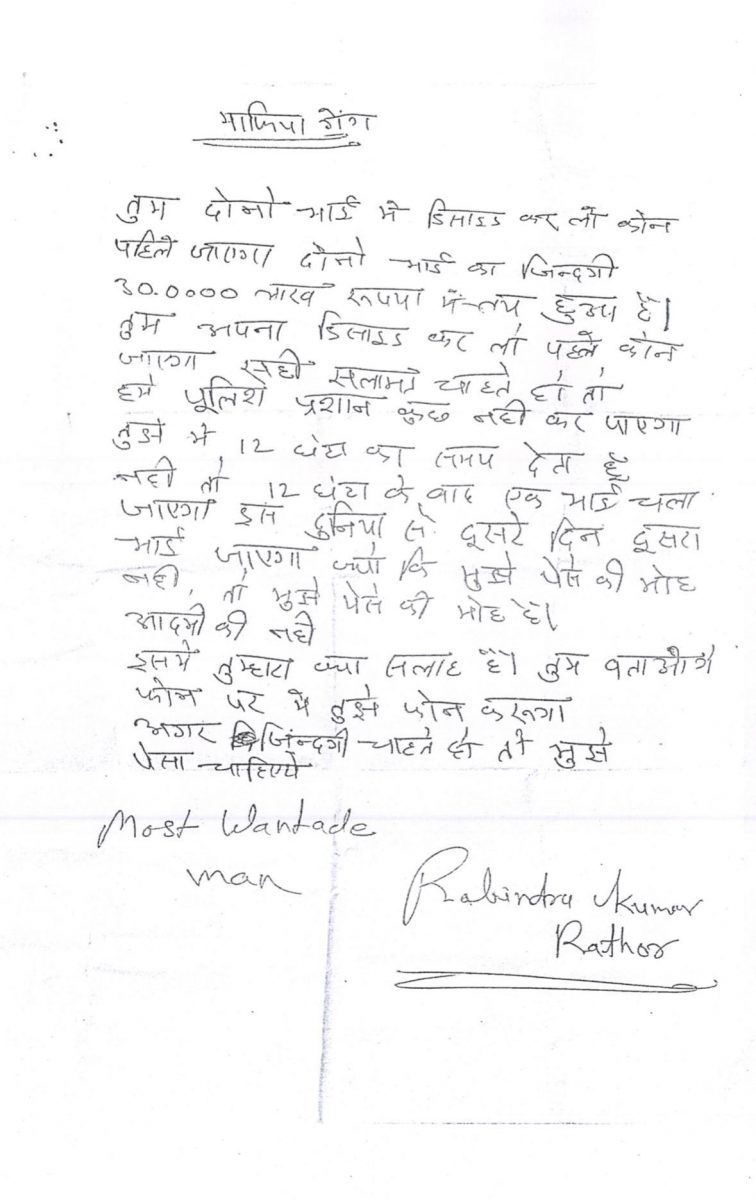 माफिया गेंग
तुम दोनो भाई मे डिसाइड कर लो कोन
पहिले जाएगा दोनो भाई का जिन्दगी
30.0000 लाख रूपया में तय हुआ है।
तुम अपना डिसाइड कर लो पहले कोन
जाएगा सही सलामत चाहते हो तो
हमे पूलिश प्रशान कुछ नही कर पाएगा
तुझे मे 12 घंटा का समय देता हूँ
नही तो 12 घंटा के बाद एक भाई चला
जाएगा इस दुनिया से दूसरे दिन दूसरा
भाई जाएगा क्यो कि मुझे पेसे की मोह
नही, तो मुझे पेसे की मोह है।
आदमी की नही
इसमे तुम्हारा क्या सलाह है। तुम बताओगे
फोन पर मे तुझे फोन करूगा
अगर जिंन्दगी चाहते हो तो मुझे
पेसा चाहिएये
Most Wantade
man
Rabindra Kumar
Rathor